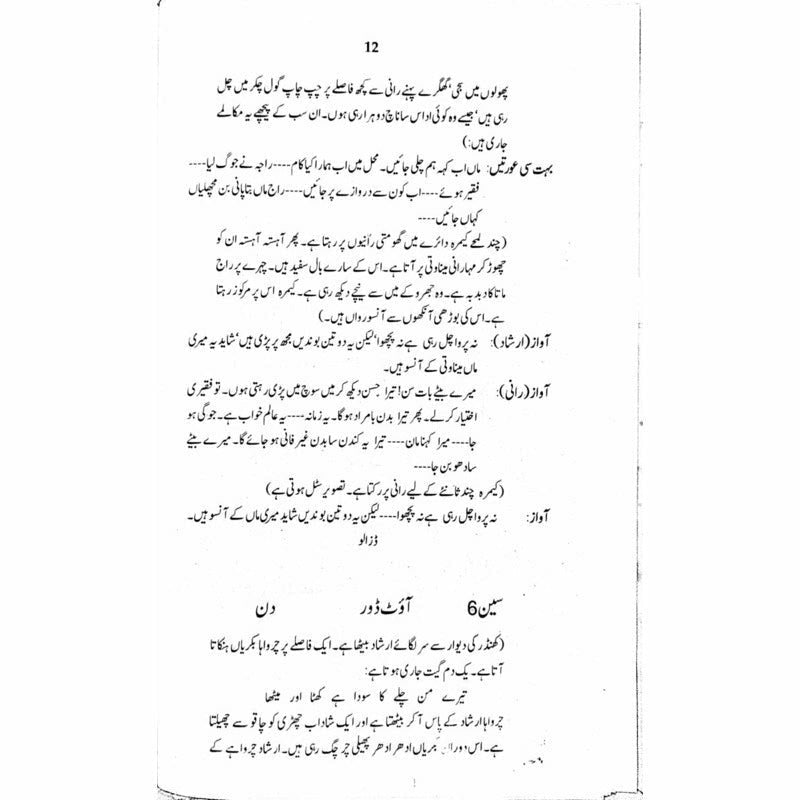 12
پھولوں میں سجی‘ گھگرے پہنے رانی سے کچھ فاصلے پر چپ چاپ گول چکر میں چل
رہی ہیں‘ جیسے وہ کوئی اداس سا ناچ دوہرا رہی ہوں۔ ان سب کے پیچھے یہ مکالمے
جاری ہیں:)
بہت سی عورتیں: ماں اب کہہ ہم چلی جائیں۔ محل میں اب ہمارا کیا کام----راجہ نے جوگ لیا----
فقیر ہوئے----اب کون سے دروازے پر جائیں----راج ماں بتا پانی بن مچھلیاں
کہاں جائیں----
(چند لمحے کیمرہ دائرے میں گھومتی رانیوں پر رہتا ہے۔ پھر آہستہ آہستہ ان کو
چھوڑ کر مہارانی میناوتی پر آتا ہے۔ اس کے سارے بال سفید ہیں۔ چہرے پر راج
ماتا کا دبدبہ ہے۔ وہ جھروکے میں سے نیچے دیکھ رہی ہے۔ کیمرہ اس پر مرکوز رہتا
ہے۔ اس کی بوڑھی آنکھوں سے آنسو رواں ہیں۔)
آواز (ارشاد): نہ پروا چل رہی ہے نہ پچھوا‘ لیکن یہ دو تین بوندیں مجھ پر پڑی ہیں‘ شاید یہ میری
ماں میناوتی کے آنسو ہیں۔
آواز (رانی): میرے بیٹے بات سن! تیرا حسن دیکھ کر میں سوچ میں پڑی رہتی ہوں۔ تو فقیری
اختیار کر لے۔ پھر تیرا بدن بامراد ہو گا۔ یہ زمانہ----یہ عالم خواب ہے۔ جوگی ہو
جا---- میرا کہنا مان---- تیرا یہ کندن سا بدن غیر فانی ہو جائے گا۔ میرے بیٹے
سادھو بن جا----
(کیمرہ چند ثانئے کے لیے رانی پر رکتا ہے۔ تصویر سٹل ہوتی ہے)
آواز: نہ پروا چل رہی ہے نہ پچھوا----لیکن یہ دو تین بوندیں شاید میری ماں کے آنسو ہیں۔
ڈزالو
سین 6 آؤٹ ڈور دن
(کھنڈر کی دیوار سے سر لگائے ارشاد بیٹھا ہے۔ ایک فاصلے پر چرواہا بکریاں ہنکاتا
آتا ہے۔ یک دم گیت جاری ہوتا ہے:
تیرے من چلے کا سودا ہے کھٹا اور میٹھا
چرواہا ارشاد کے پاس آ کر بیٹھتا ہے اور ایک شاداب چھڑی کو چاقو سے چھیلتا
ہے۔ اس دوران بکریاں ادھر ادھر پھیلی چر چگ رہی ہیں۔ ارشاد چرواہے کے